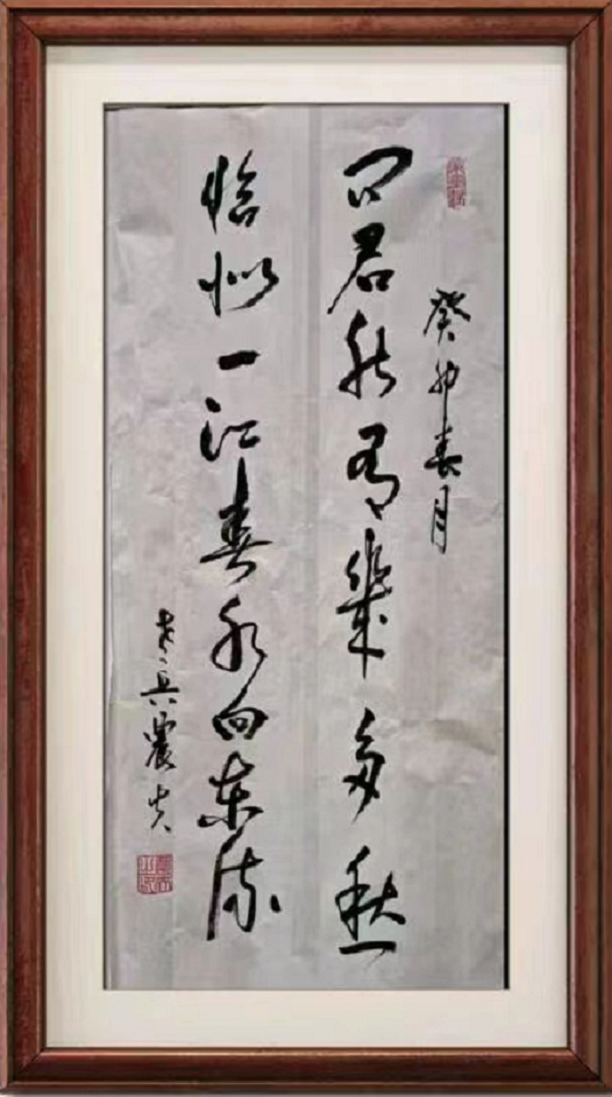 癸卯春月
问君能有幾多愁
恰似一江春水向东流
老兵農夫